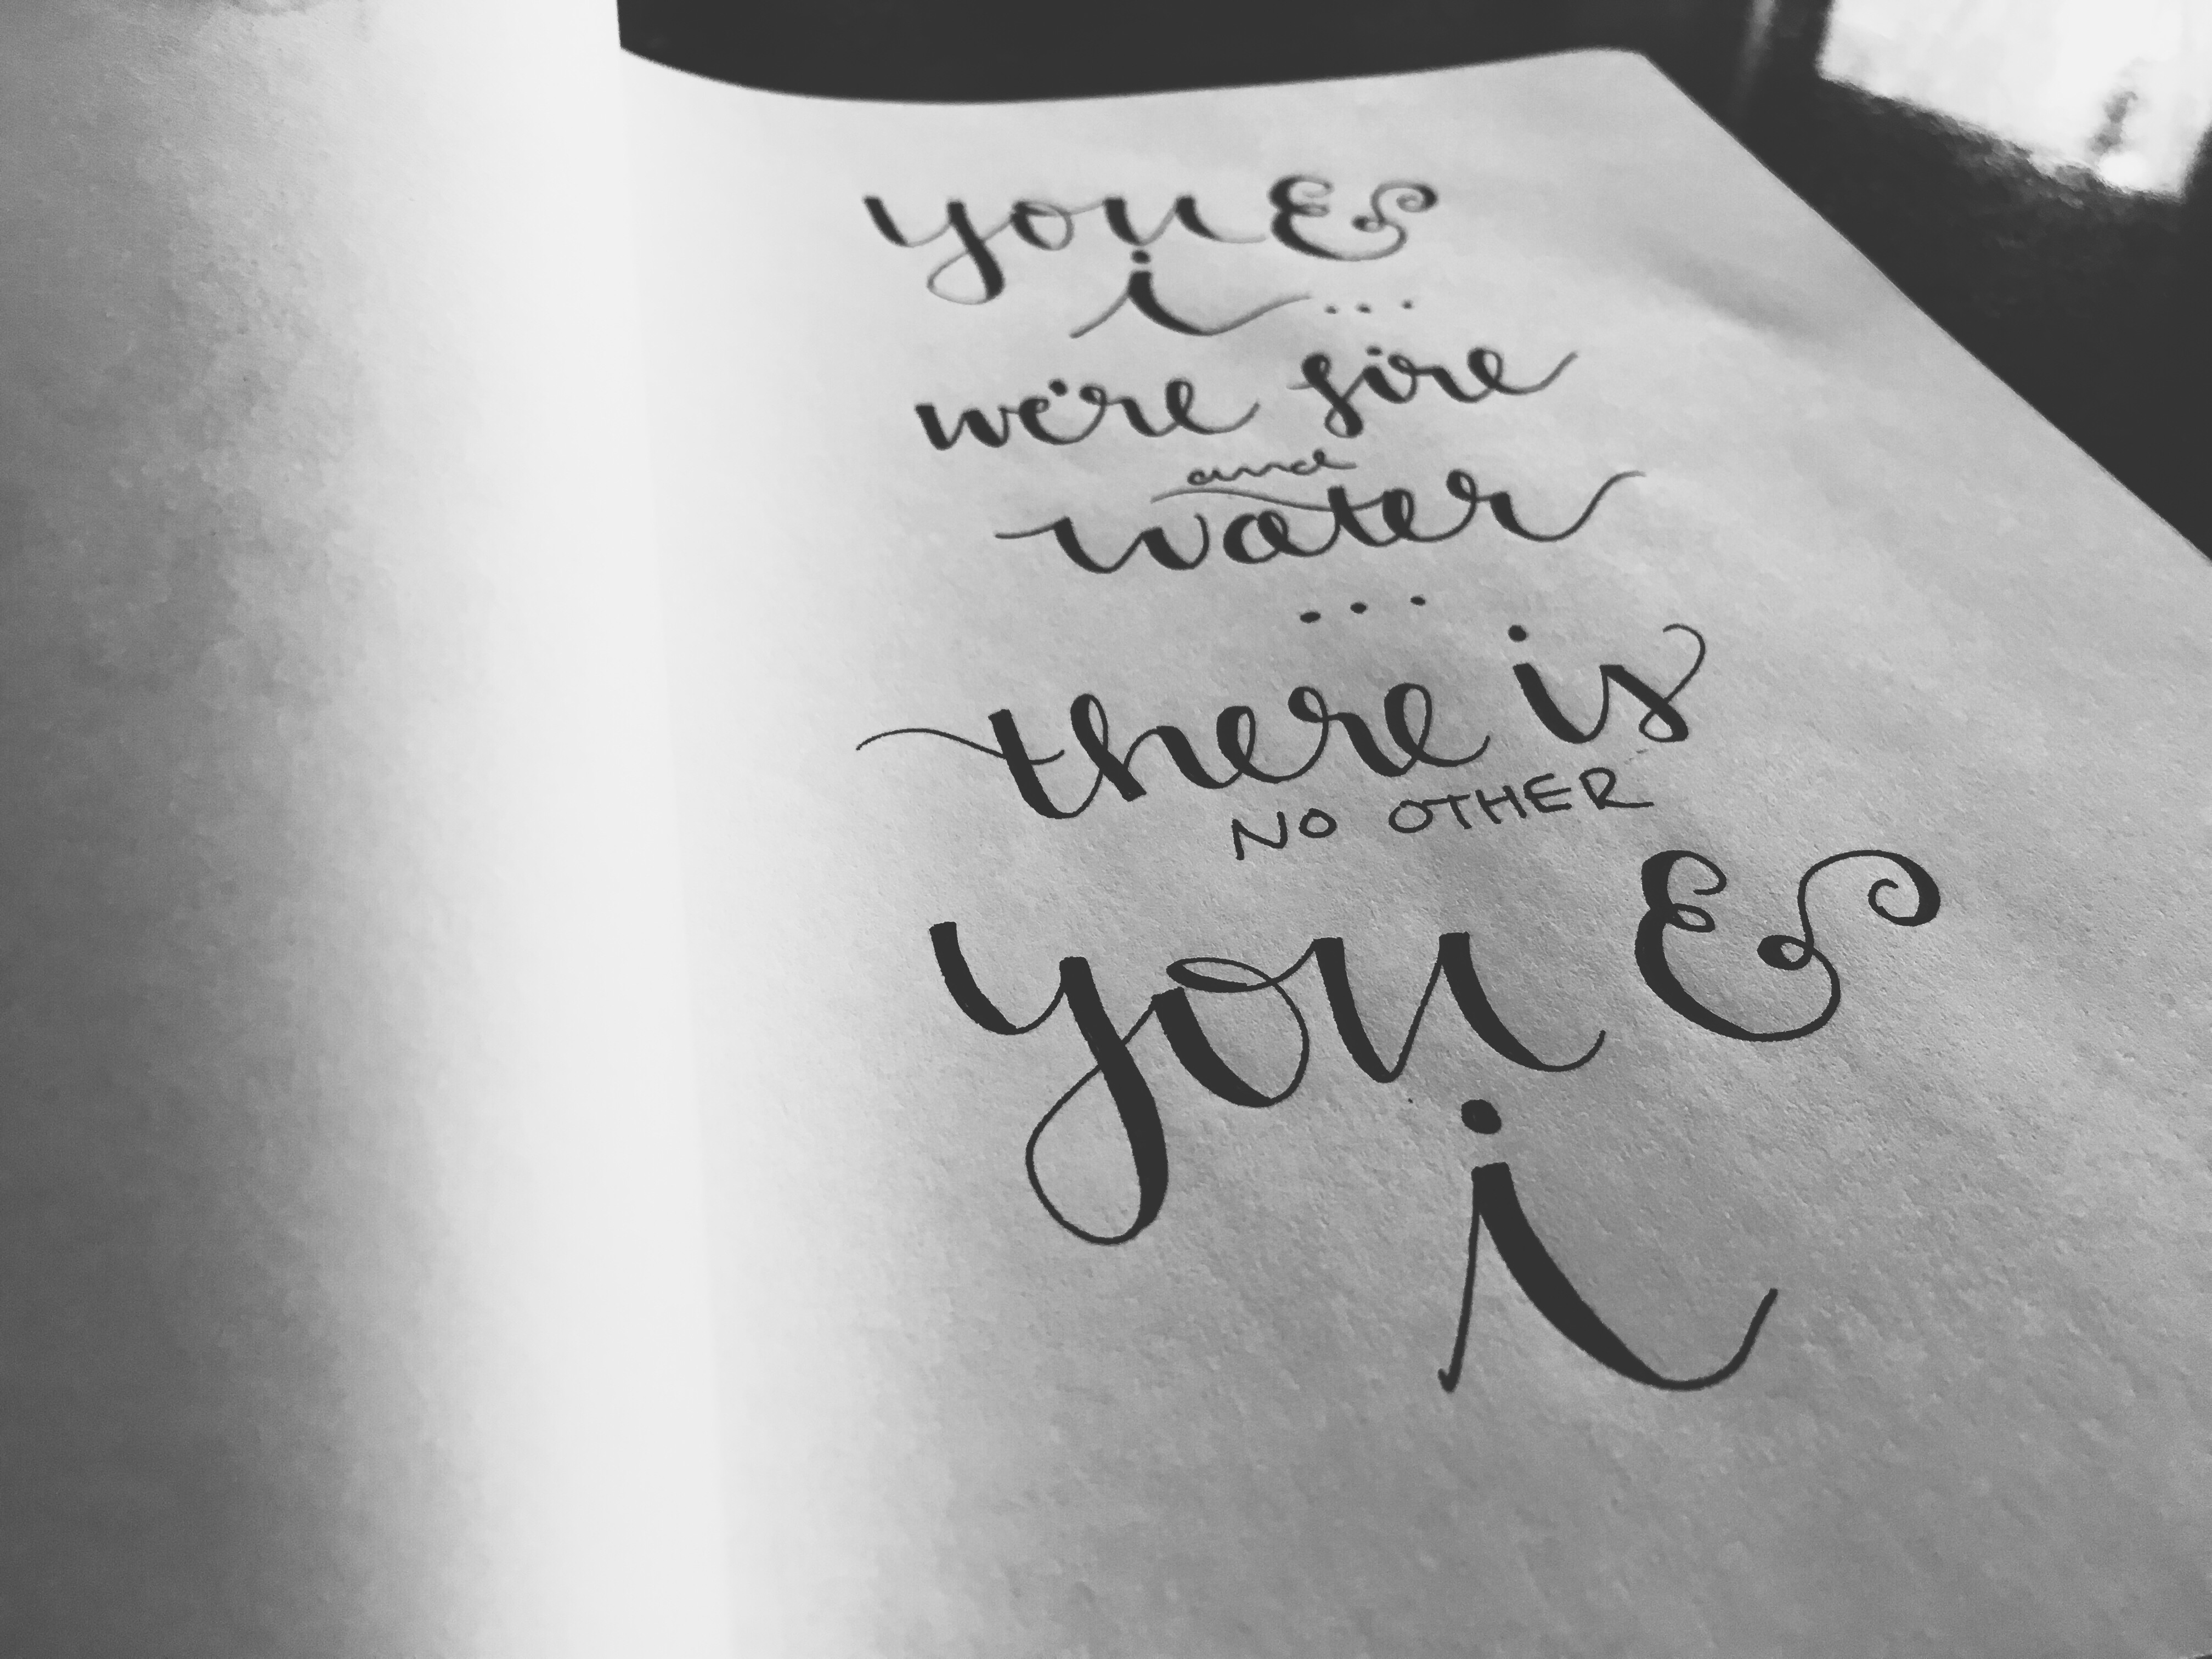 you &
i...
we're fire
and
water
...
there is
NO OTHER
you &
i